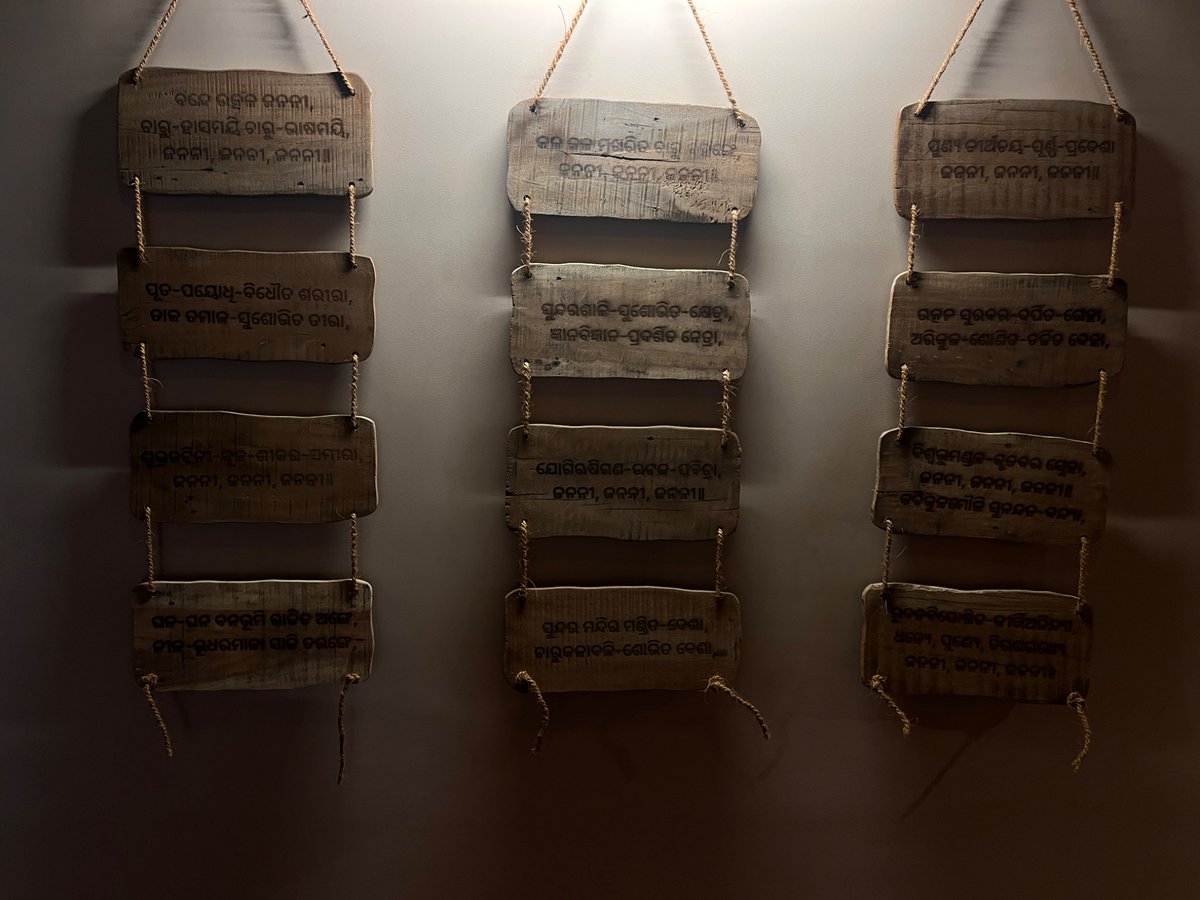 ବନ୍ଦେ ଉତ୍କଳ ଜନନୀ,
ଚାରୁ-ହାସମୟି ଚାରୁ-ଭାଷମୟି,
ଜନନୀ, ଜନନୀ, ଜନନୀ॥
ପୂତ-ପୟୋଧି-ବିଧୌତ ଶରୀରା,
ତାଳ ତମାଳ-ସୁଶୋଭିତ ତୀରା,
ଶୁଭ୍ରତଟିନୀ-କୂଳ-ଶୀକର-ସମୀରା
ଜନନୀ, ଜନନୀ, ଜନନୀ॥
ଘନ-ଘନ ବନଭୂମି ରାଜିତ ଅଙ୍ଗେ,
ନୀଳ-ଭୂଧରମାଳା ସାଜି ତରଙ୍ଗେ
କଳ କଳ ମୁଖରିତ ଚାରୁ
ଜନନୀ, ଜନନୀ, ଜନନୀ॥
ସୁନ୍ଦରଶାଳି-ସୁଶୋଭିତ-କ୍ଷେତ୍ରା,
ଜ୍ଞାନବିଜ୍ଞାନ-ପ୍ରଦର୍ଶିତ ନେତ୍ରା,
ଯୋଗିଋଷିଗଣ-ଉଟଜ-ପବିତ୍ରା,
ଜନନୀ, ଜନନୀ, ଜନନୀ॥
ସୁନ୍ଦର ମନ୍ଦିର ମଣ୍ଡିତ-ଦେଶା,
ଚାରୁକଳାବଳି-ଶୋଭିତ ବେଶା,
ପୁଣ୍ୟ ତୀର୍ଥଚୟ-ପୂର୍ଣ୍ଣ-ପ୍ରଦେଶା
ଜନନୀ, ଜନନୀ, ଜନନୀ॥
ଉତ୍କଳ ସୁରବର-ଦର୍ପିତ-ଗେହା,
ଅରିକୁଳ-ଶୋଣିତ-ଚର୍ଚ୍ଚିତ ଦେହା,
ବିଶ୍ୱଭୂମଣ୍ଡଳ-କୃତବର ସ୍ନେହା,
ଜନନୀ, ଜନନୀ, ଜନନୀ॥
କବିକୁଳମୌଳି ସୁନନ୍ଦନ-ବନ୍ଦ୍ୟା,
ଧନ୍ୟେ, ପୁଣ୍ୟେ, ଚିରଶରଣ୍ୟେ,
ଜନନୀ, ଜନନୀ, ଜନନୀ॥